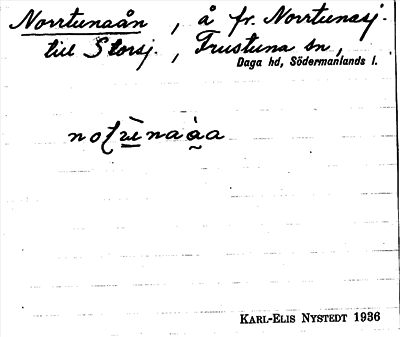 Norrtunaån , å fr. Norrtunasj.
till Storsj. , Frustuna sn,
Daga hd, Södermanlands l.
KARL-ELIS NYSTEDT 1936